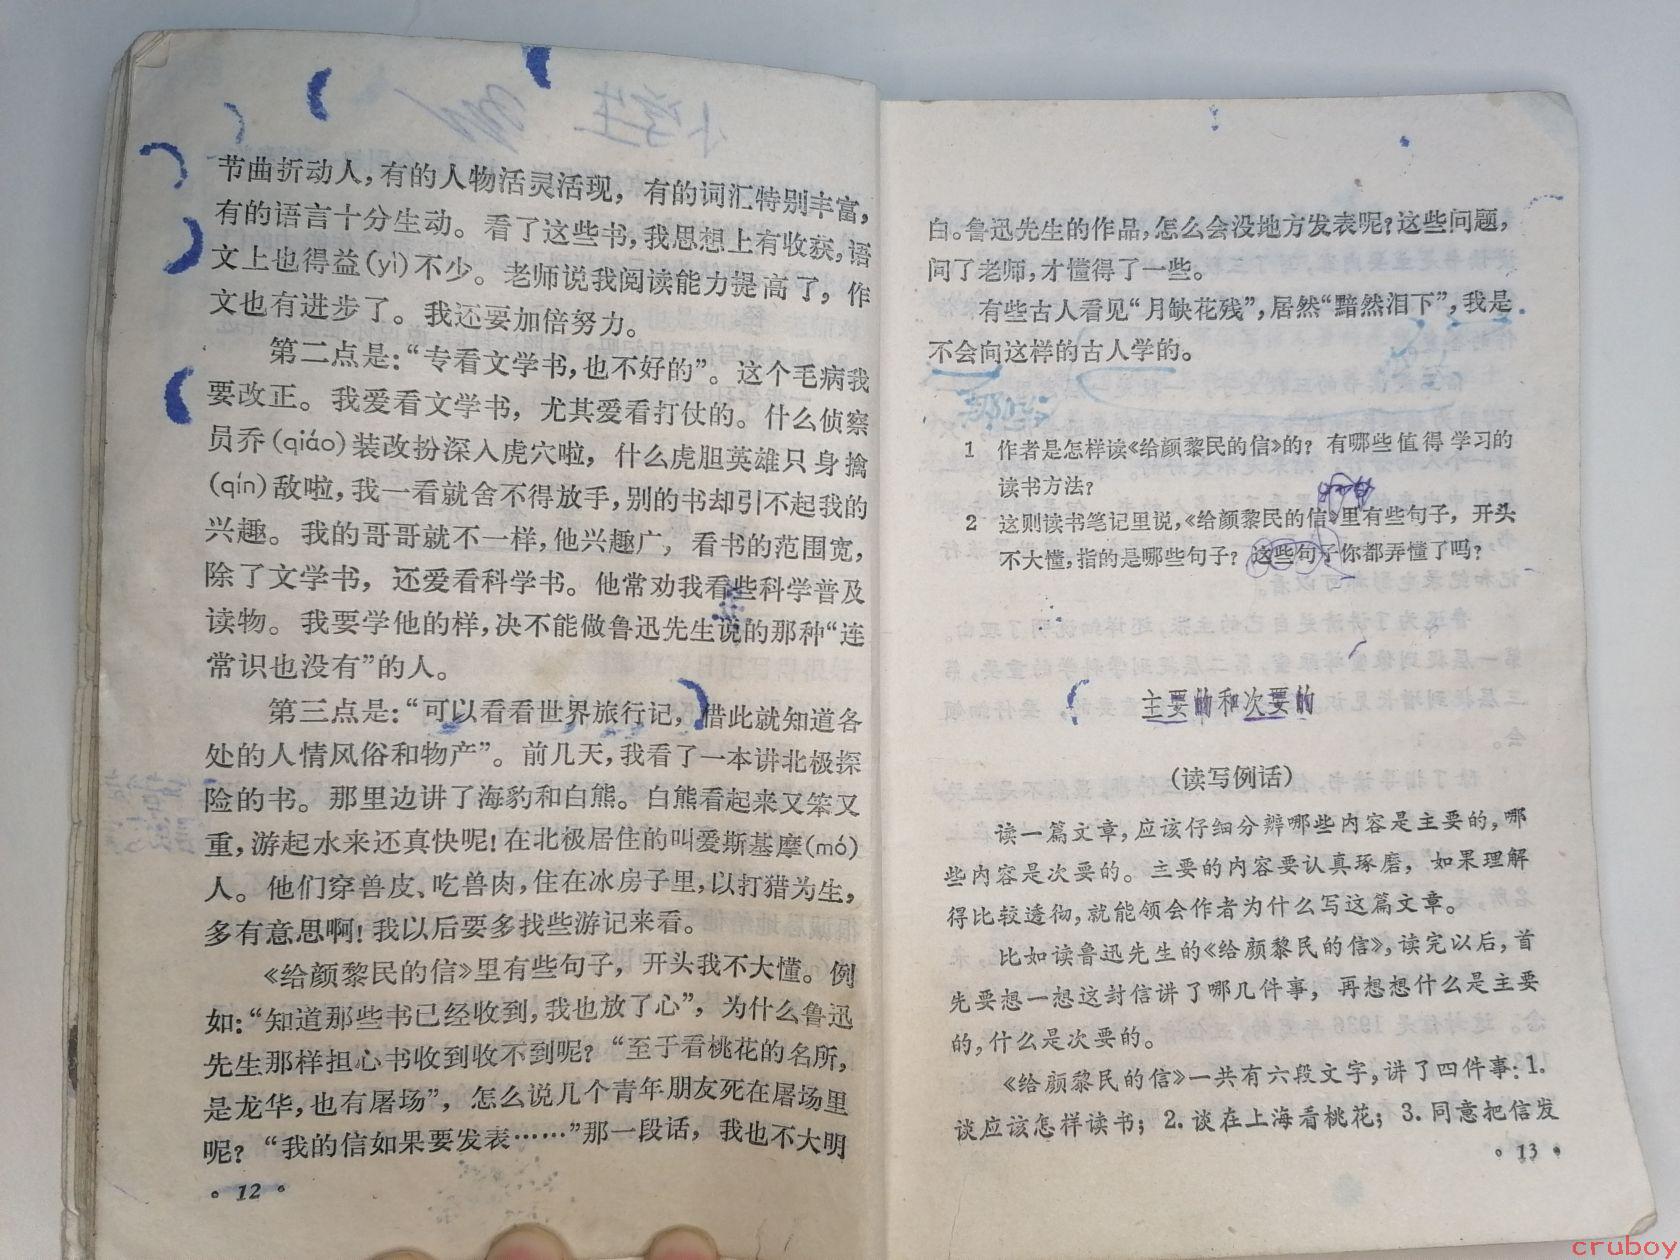 小学生
节曲折动人，有的人物活灵活现，有的词汇特别丰富，
有的语言十分生动。看了这些书，我思想上有收获，语
文上也得益(yì)不少。老师说我阅读能力提高了，作
文也有进步了。我还要加倍努力。
第二点是：“专看文学书，也不好的”。这个毛病我
要改正。我爱看文学书，尤其爱看打仗的。什么侦察
员乔(qiáo)装改扮深入虎穴啦，什么虎胆英雄只身擒
(qín)敌啦，我一看就舍不得放手，别的书却引不起我的
兴趣。我的哥哥就不一样，他兴趣广，看书的范围宽，
除了文学书，还爱看科学书。他常劝我看些科学普及
读物。我要学他的样，决不能做鲁迅先生说的那种“连
常识也没有”的人。
第三点是：“可以看看世界旅行记，借此就知道各
处的人情风俗和物产”。前几天，我看了一本讲北极探
险的书。那里边讲了海豹和白熊。白熊看起来又笨又
重，游起水来还真快呢！在北极居住的叫爱斯基摩(mó)
人。他们穿兽皮、吃兽肉，住在冰房子里，以打猎为生，
多有意思啊！我以后要多找些游记来看。
《给颜黎民的信》里有些句子，开头我不大懂。例
如：“知道那些书已经收到，我也放了心”，为什么鲁迅
先生那样担心书收到收不到呢？“至于看桃花的名所，
是龙华，也有屠场”，怎么说几个青年朋友死在屠场里
呢？“我的信如果要发表……”那一段话，我也不大明
12
白。鲁迅先生的作品，怎么会没地方发表呢？这些问题，
问了老师，才懂得了一些。
有些古人看见“月缺花残”，居然“黯然泪下”，我是
不会向这样的古人学的。
1 作者是怎样读《给颜黎民的信》的？有哪些值得学习的
读书方法？
2 这则读书笔记里说，《给颜黎民的信》里有些句子，开头
不大懂，指的是哪些句子？这些句子你都弄懂了吗？
主要的和次要的
（读写例话）
读一篇文章，应该仔细分辨哪些内容是主要的，哪
些内容是次要的。主要的内容要认真琢磨，如果理解
得比较透彻，就能领会作者为什么写这篇文章。
比如读鲁迅先生的《给颜黎民的信》，读完以后，首
先要想一想这封信讲了哪几件事，再想想什么是主要
的，什么是次要的。
《给颜黎民的信》一共有六段文字，讲了四件事：1.
谈应该怎样读书；2.谈在上海看桃花；3.同意把信发
13
cruboy